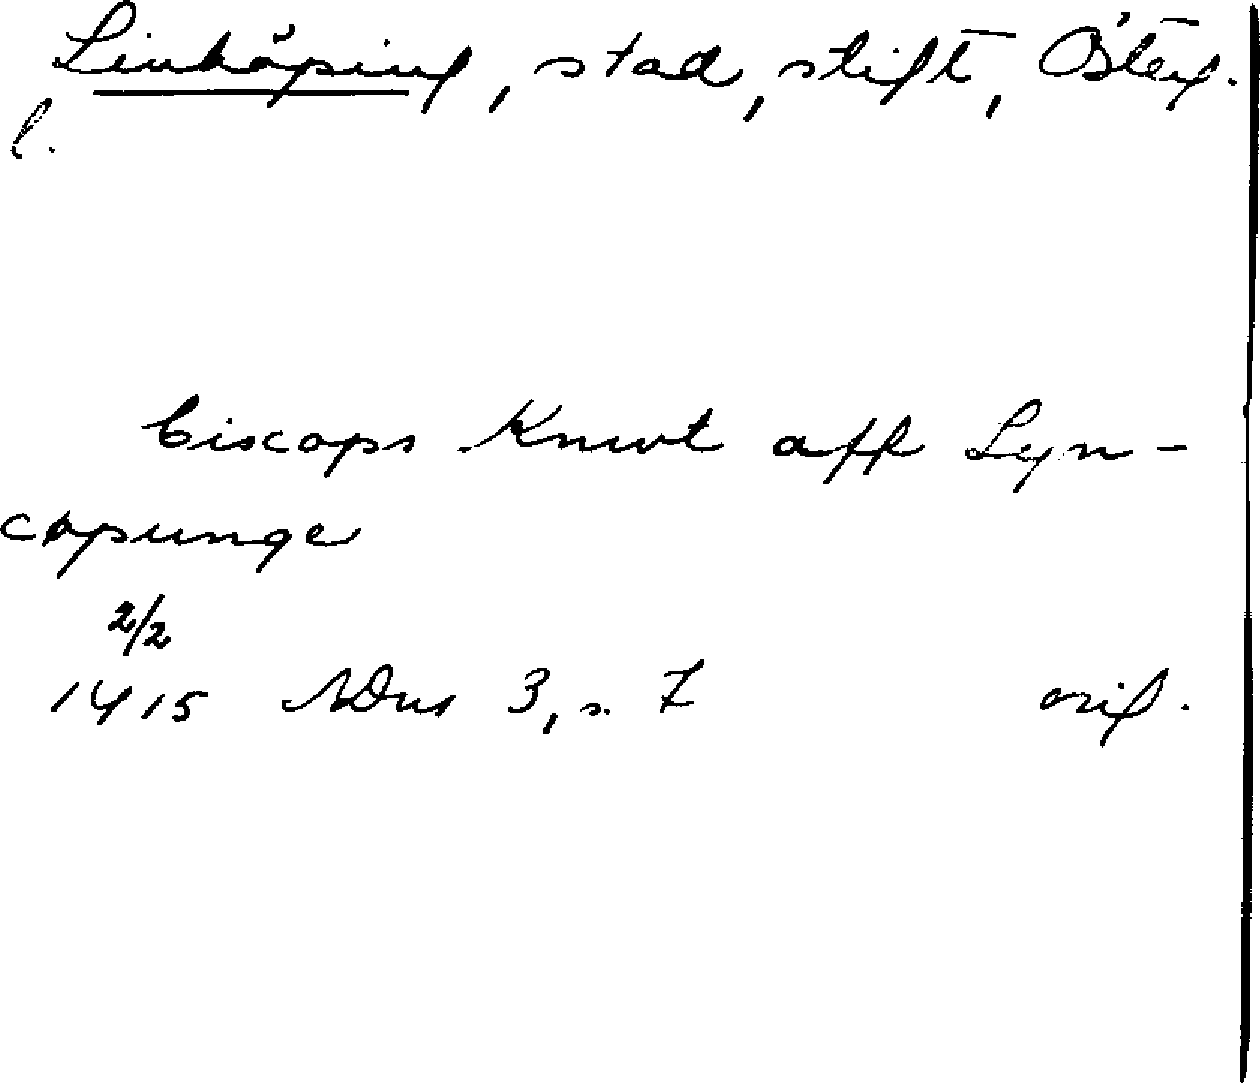 Linköping, stad, stift, Österg.
l.
biscops Knwt aff Lyn-
copunge
2/2
1415 SDns 3, s. 7 orig.